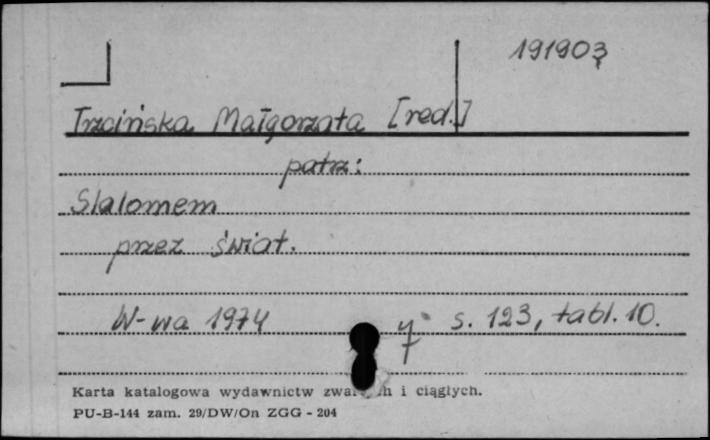 191903
Trzcińska Małgorzata [red.]
patrz:
Slalomem
przez świat.
W-wa 1974 s. 123, tabl. 10.
Karta katalogowa wydawnictw i ciągłych.
PU-B-144 zam. 29/DW/On ZGG - 204